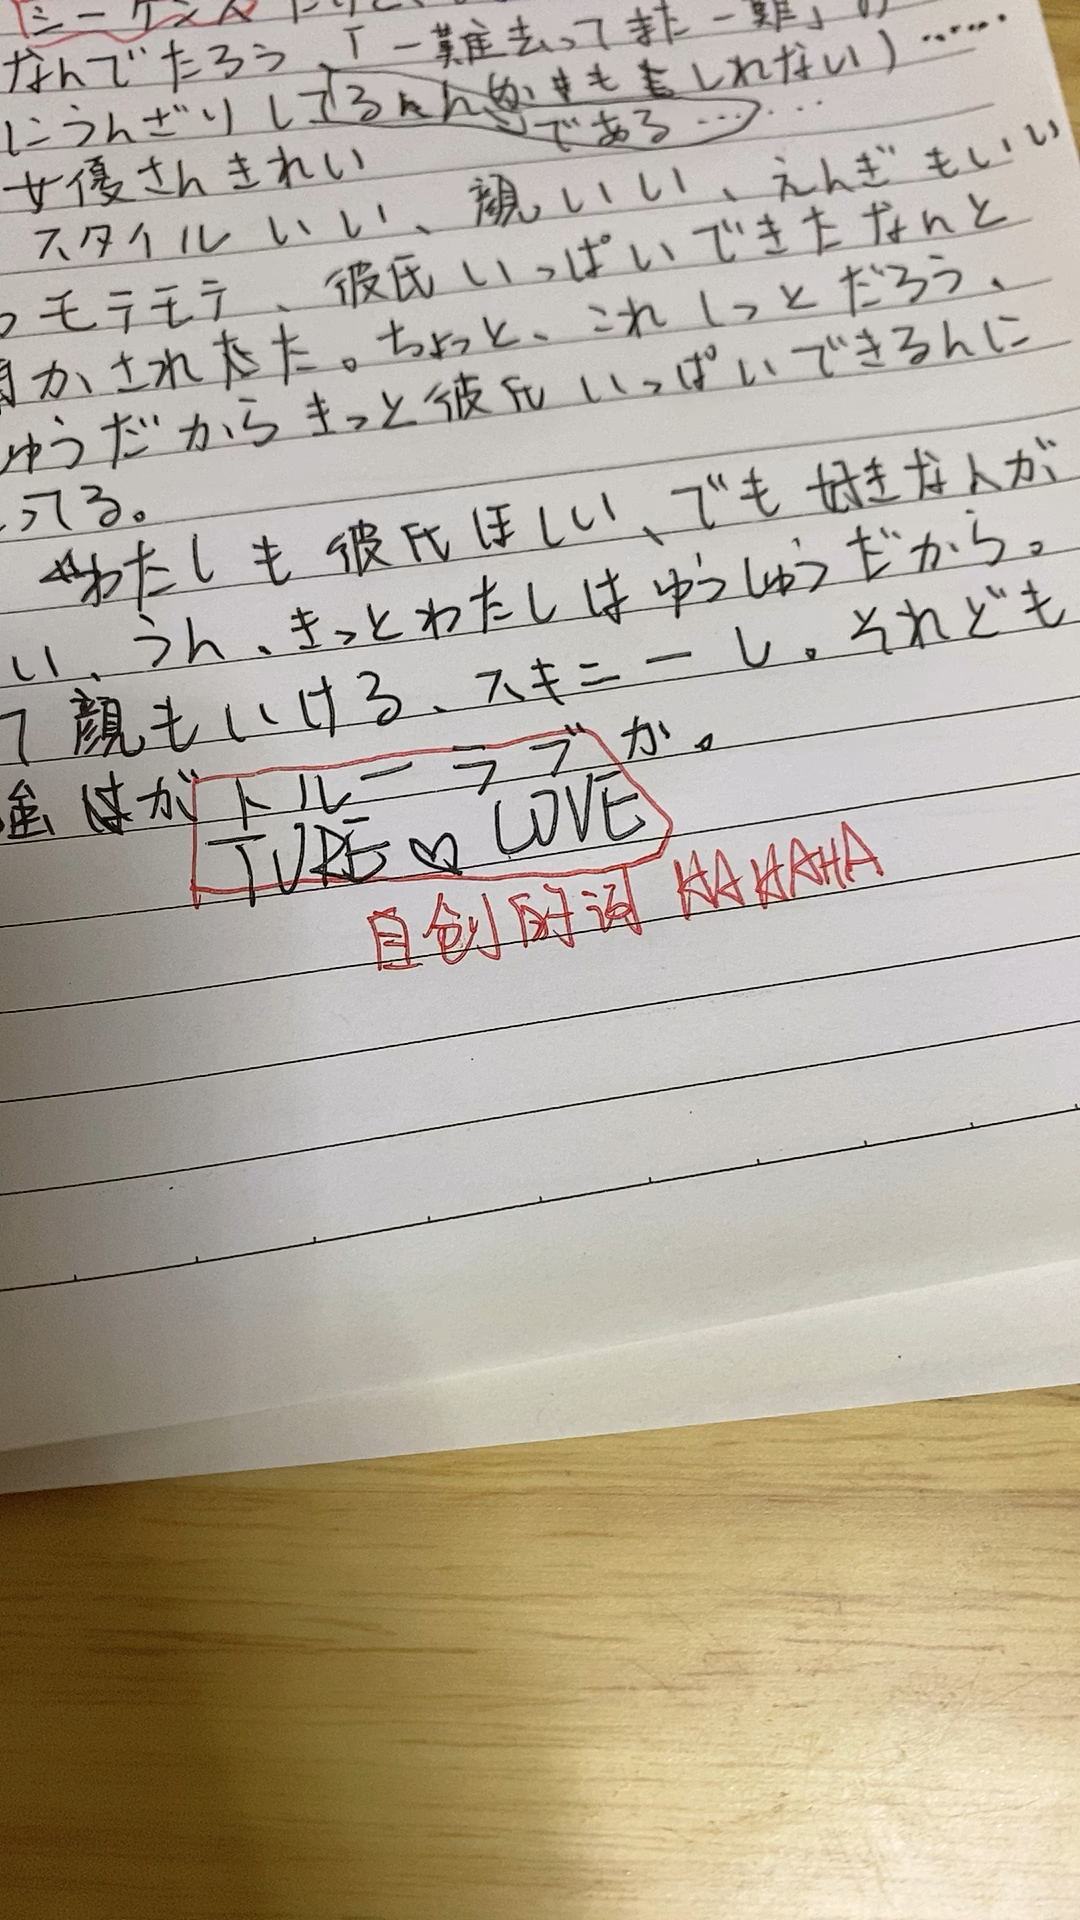 シーケンス
なんでだろう、「一難去ってまた一難」の
にうんざりしてるんかもしれない)……
である……
女優さんきれい
スタイルいい、顔いい、えんぎもいい
っモテモテ、彼氏いっぱいできたなんと
聞かされた。ちょっと、これしっとだろう、
しゅうだからきっと彼氏いっぱいできるんに
ってる。
わたしも彼氏ほしい、でも好きな人が
い、うん、きっとわたしはゆうしゅうだから。
て顔もいける、スキニーし。それども
はが トルーラブか。
TURE ♡ LOVE
自创的词 HAHAHA